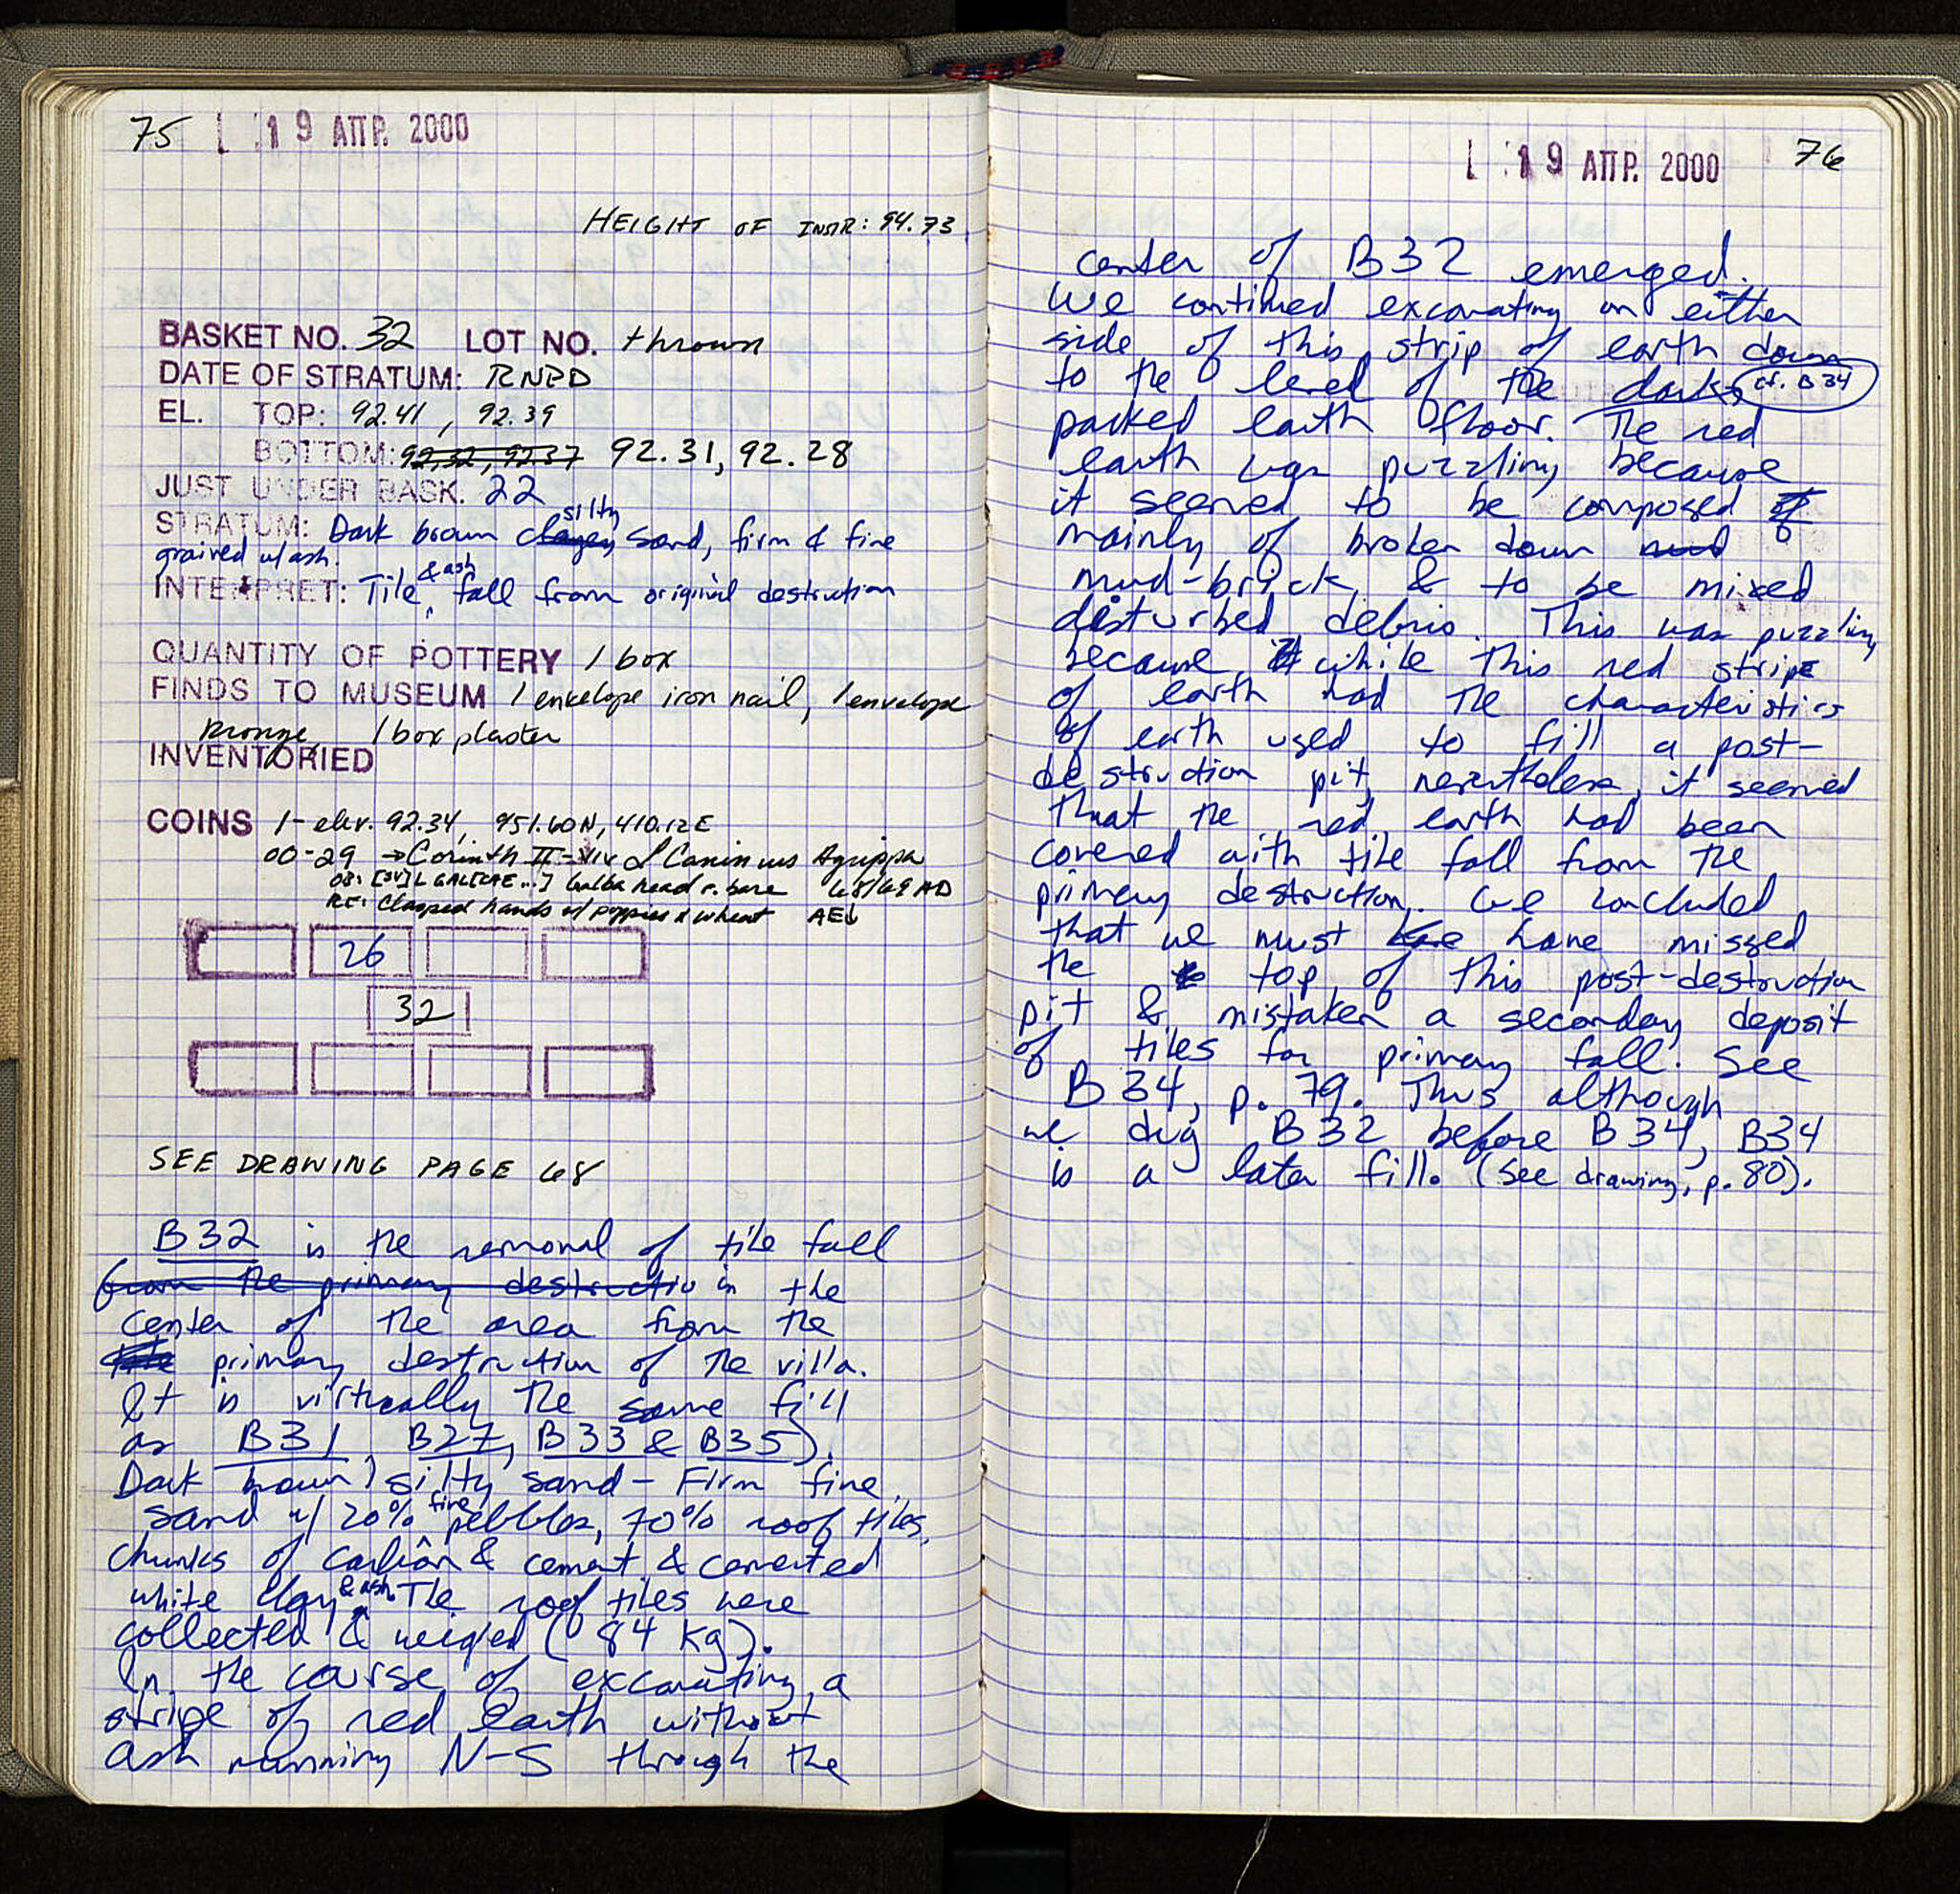 75 19 ΑΠΡ. 2000
HEIGHT OF INSTR: 94.73
BASKET NO. 32 LOT NO. thrown
DATE OF STRATUM: RNPD
EL. TOP: 92.41, 92.39
BOTTOM: 92.32, 92.37 92.31, 92.28
JUST UNDER BASK. 22
STRATUM: Dark brown clayey silty sand, firm & fine
grained w/ash.
INTERPRET: Tile & ash fall from original destruction
QUANTITY OF POTTERY 1 box
FINDS TO MUSEUM 1 envelope iron nail, 1 envelope
bronze 1 box plaster
INVENTORIED
COINS 1- elev. 92.34, 951.60N, 410.12E
00-29 → Corinth II-Vir L Caninius Agrippa
OB: [SV]L GAL[BAE...] Galba head r. bare 68/69 AD
RE: Clasped hands w/ poppies & wheat AE↓
26
32
SEE DRAWING PAGE 68
B32 is the removal of tile fall
from the primary destructio in the
center of the area from the
primary destruction of the villa.
It is virtually the same fill
as B31, B27, B33 & B35).
Dark brown silty sand - Firm fine
sand w/ 20% fine pebbles, 70% roof tiles,
chunks of carbon & cement & cemented
white clay & ash. The roof tiles were
collected & weighed (84 kg).
In the course of excavating, a
stripe of red earth without
ash running N-S through the
19 ΑΠΡ. 2000 76
center of B32 emerged.
We continued excavating on either
side of this strip of earth down
to the level of the dark, cf. B34
packed earth floor. The red
earth was puzzling because
it seemed to be composed of
mainly of broken down mud
mud-brick, & to be mixed
disturbed debris. This was puzzling
because it while this red stripe
of earth had the characteristics
of earth used to fill a post-
destruction pit, nevertheless, it seemed
that the red earth had been
covered with tile fall from the
primary destruction. We concluded
that we must have missed
the to top of this post-destruction
pit & mistaken a secondary deposit
of tiles for primary fall. See
B34, p. 79. Thus although
we dug B32 before B34, B34
is a later fill. (See drawing, p. 80).